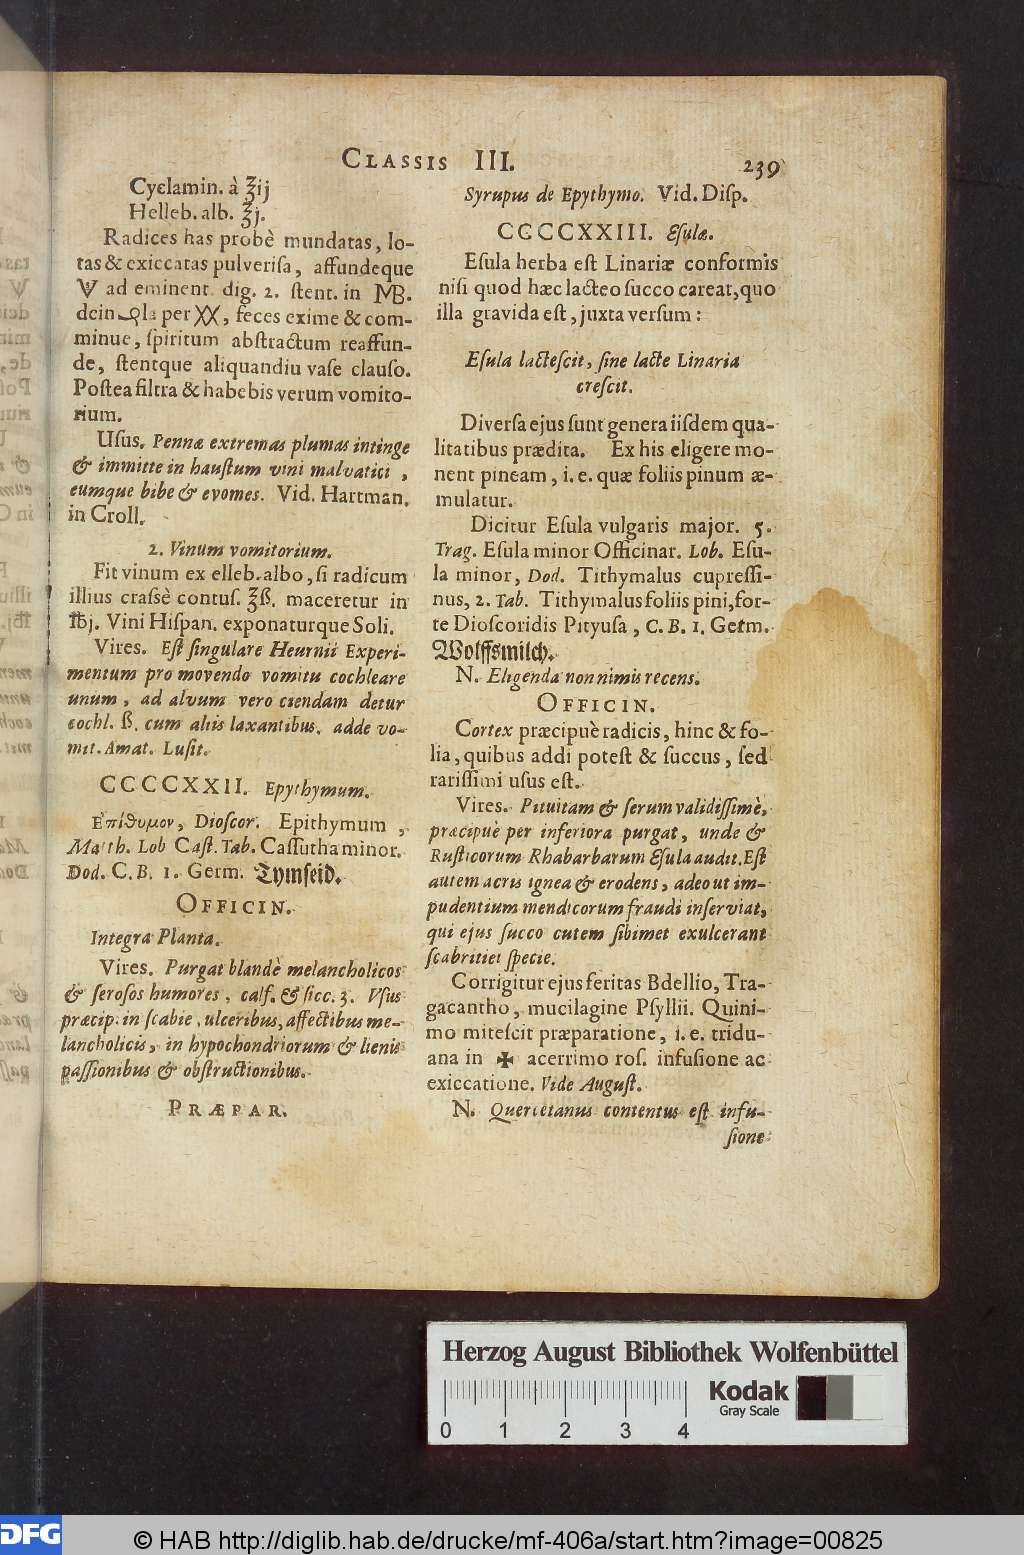 CLASSIS III.
239
Cyclamin. à ʒij
Helleb. alb. ʒj.
Radices has probè mundatas, lo-
tas & exiccatas pulverisa, affundeque
ad eminent. dig. 2. stent. in MB.
dein per XX, feces exime & com-
minue, spiritum abstractum reaffun-
de, stentque aliquandiu vase clauso.
Postea filtra & habebis verum vomito-
rium.
Usus. Pennæ extremas plumas intinge
& immitte in haustum vini malvatici,
eumque bibe & evomes. Vid. Hartman.
in Croll.
2. Vinum vomitorium.
Fit vinum ex elleb. albo, si radicum
illius crassè contus. ʒß. maceretur in
℔j. Vini Hispan. exponaturque Soli.
Vires. Est singulare Heurnii Experi-
mentum pro movendo vomitu cochleare
unum, ad alvum vero ciendam detur
cochl. ß. cum aliis laxantibus. adde vo-
mit. Amat. Lusit.
CCCCXXII. Epythymum.
Ἐπίθυμον, Dioscor. Epithymum,
Math. Lob Cast. Tab. Cassutha minor.
Dod. C. B. 1. Germ. Tymseid.
OFFICIN.
Integra Planta.
Vires. Purgat blandè melancholicos
& serosos humores, calf. & sicc. 3. Usus
præcip. in scabie, ulceribus, affectibus me-
lancholicis, in hypochondriorum & lienis
passionibus & obstructionibus.
PRÆPAR.
Syrupus de Epythymo. Vid. Disp.
CCCCXXIII. Esulæ.
Esula herba est Linariæ conformis
nisi quod hæc lacteo succo careat, quo
illa gravida est, juxta versum:
Esula lactescit, sine lacte Linaria
crescit.
Diversa ejus sunt genera iisdem qua-
litatibus prædita. Ex his eligere mo-
nent pineam, i. e. quæ foliis pinum æ-
mulatur.
Dicitur Esula vulgaris major. 5.
Trag. Esula minor Officinar. Lob. Esu-
la minor, Dod. Tithymalus cupressi-
nus, 2. Tab. Tithymalus foliis pini, for-
te Dioscoridis Pityusa, C. B. 1. Germ.
Wolffsmilch.
N. Eligenda non nimis recens.
OFFICIN.
Cortex præcipuè radicis, hinc & fo-
lia, quibus addi potest & succus, sed
rarissimi usus est.
Vires. Pituitam & serum validissimè,
præcipuè per inferiora purgat, unde &
Rusticorum Rhabarbarum Esula audit. Est
autem acris ignea & erodens, adeo ut im-
pudentium mendicorum fraudi inserviat,
qui ejus succo cutem sibimet exulcerant
scabritiei specie.
Corrigitur ejus feritas Bdellio, Tra-
gacantho, mucilagine Psyllii. Quini-
mo mitescit præparatione, i. e. tridu-
ana in ✠ acerrimo ros. infusione ac
exiccatione. Vide August.
N. Quercetanus contentus est infu-
sione
Herzog August Bibliothek Wolfenbüttel
0 1 2 3 4
Kodak
Gray Scale
DFG
© HAB http://diglib.hab.de/drucke/mf-406a/start.htm?image=00825